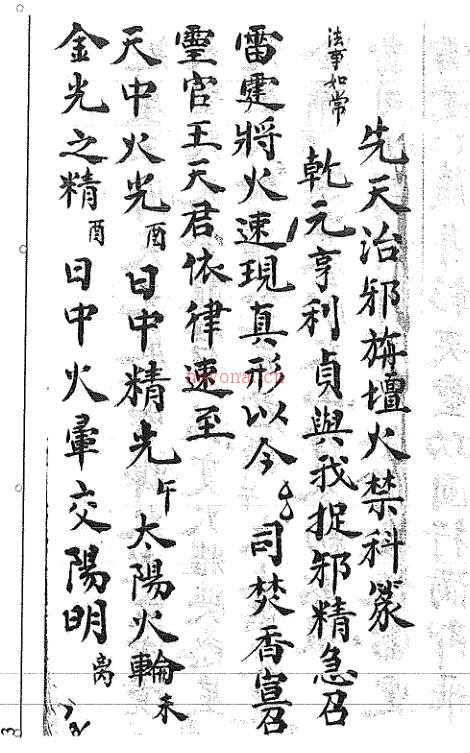 先天治邪旃壇火禁科篆
法事如常
乾元亨利貞與我捉邪精急召
雷霆將火速現真形以今 司焚香宣召
靈官王天君依律速至
天中火光酉日中精光午太陽火輪未
金光之精酉日中火暈交陽明离